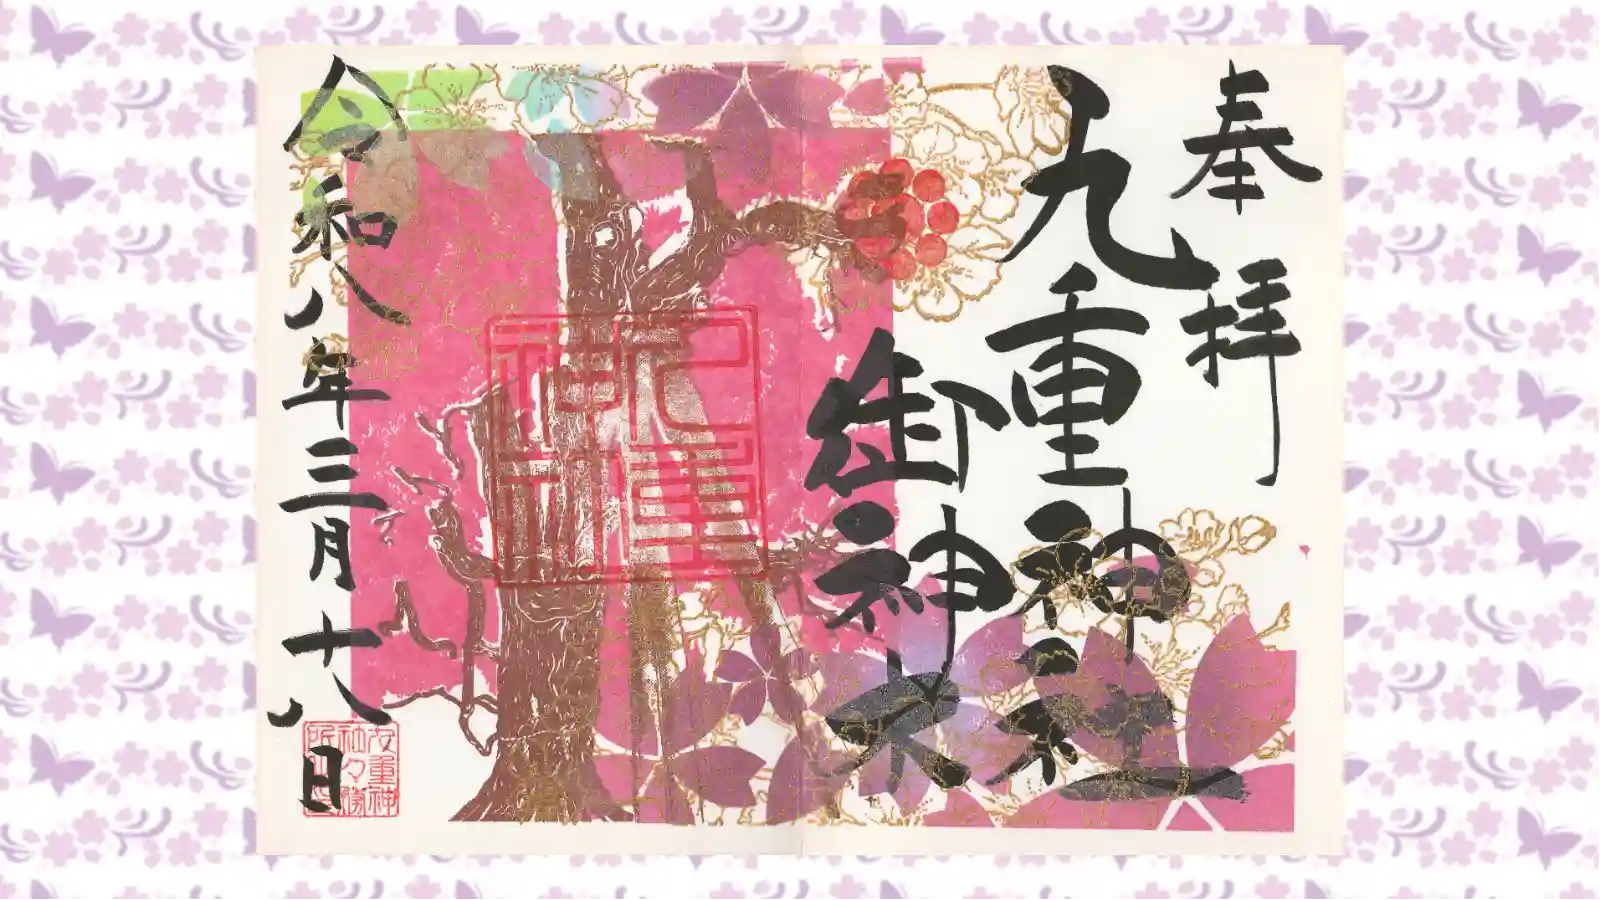 奉拝
九重神社
御神木
令和八年三月十八日
九重神社
九重神
社々務
所